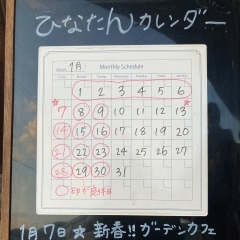 ひなたんカレンダー
Month: 1月
Monthly Schedule
Sunday Monday Tuesday Wednesday Thursday Friday Saturday
1 2 3 4 5 6
7 8 9 10 11 12 13
14 15 16 17 18 19 20
21 22 23 24 25 26 27
28 29 30 31
○印が定休日
1月7日☆新春!!ガーデンカフェ